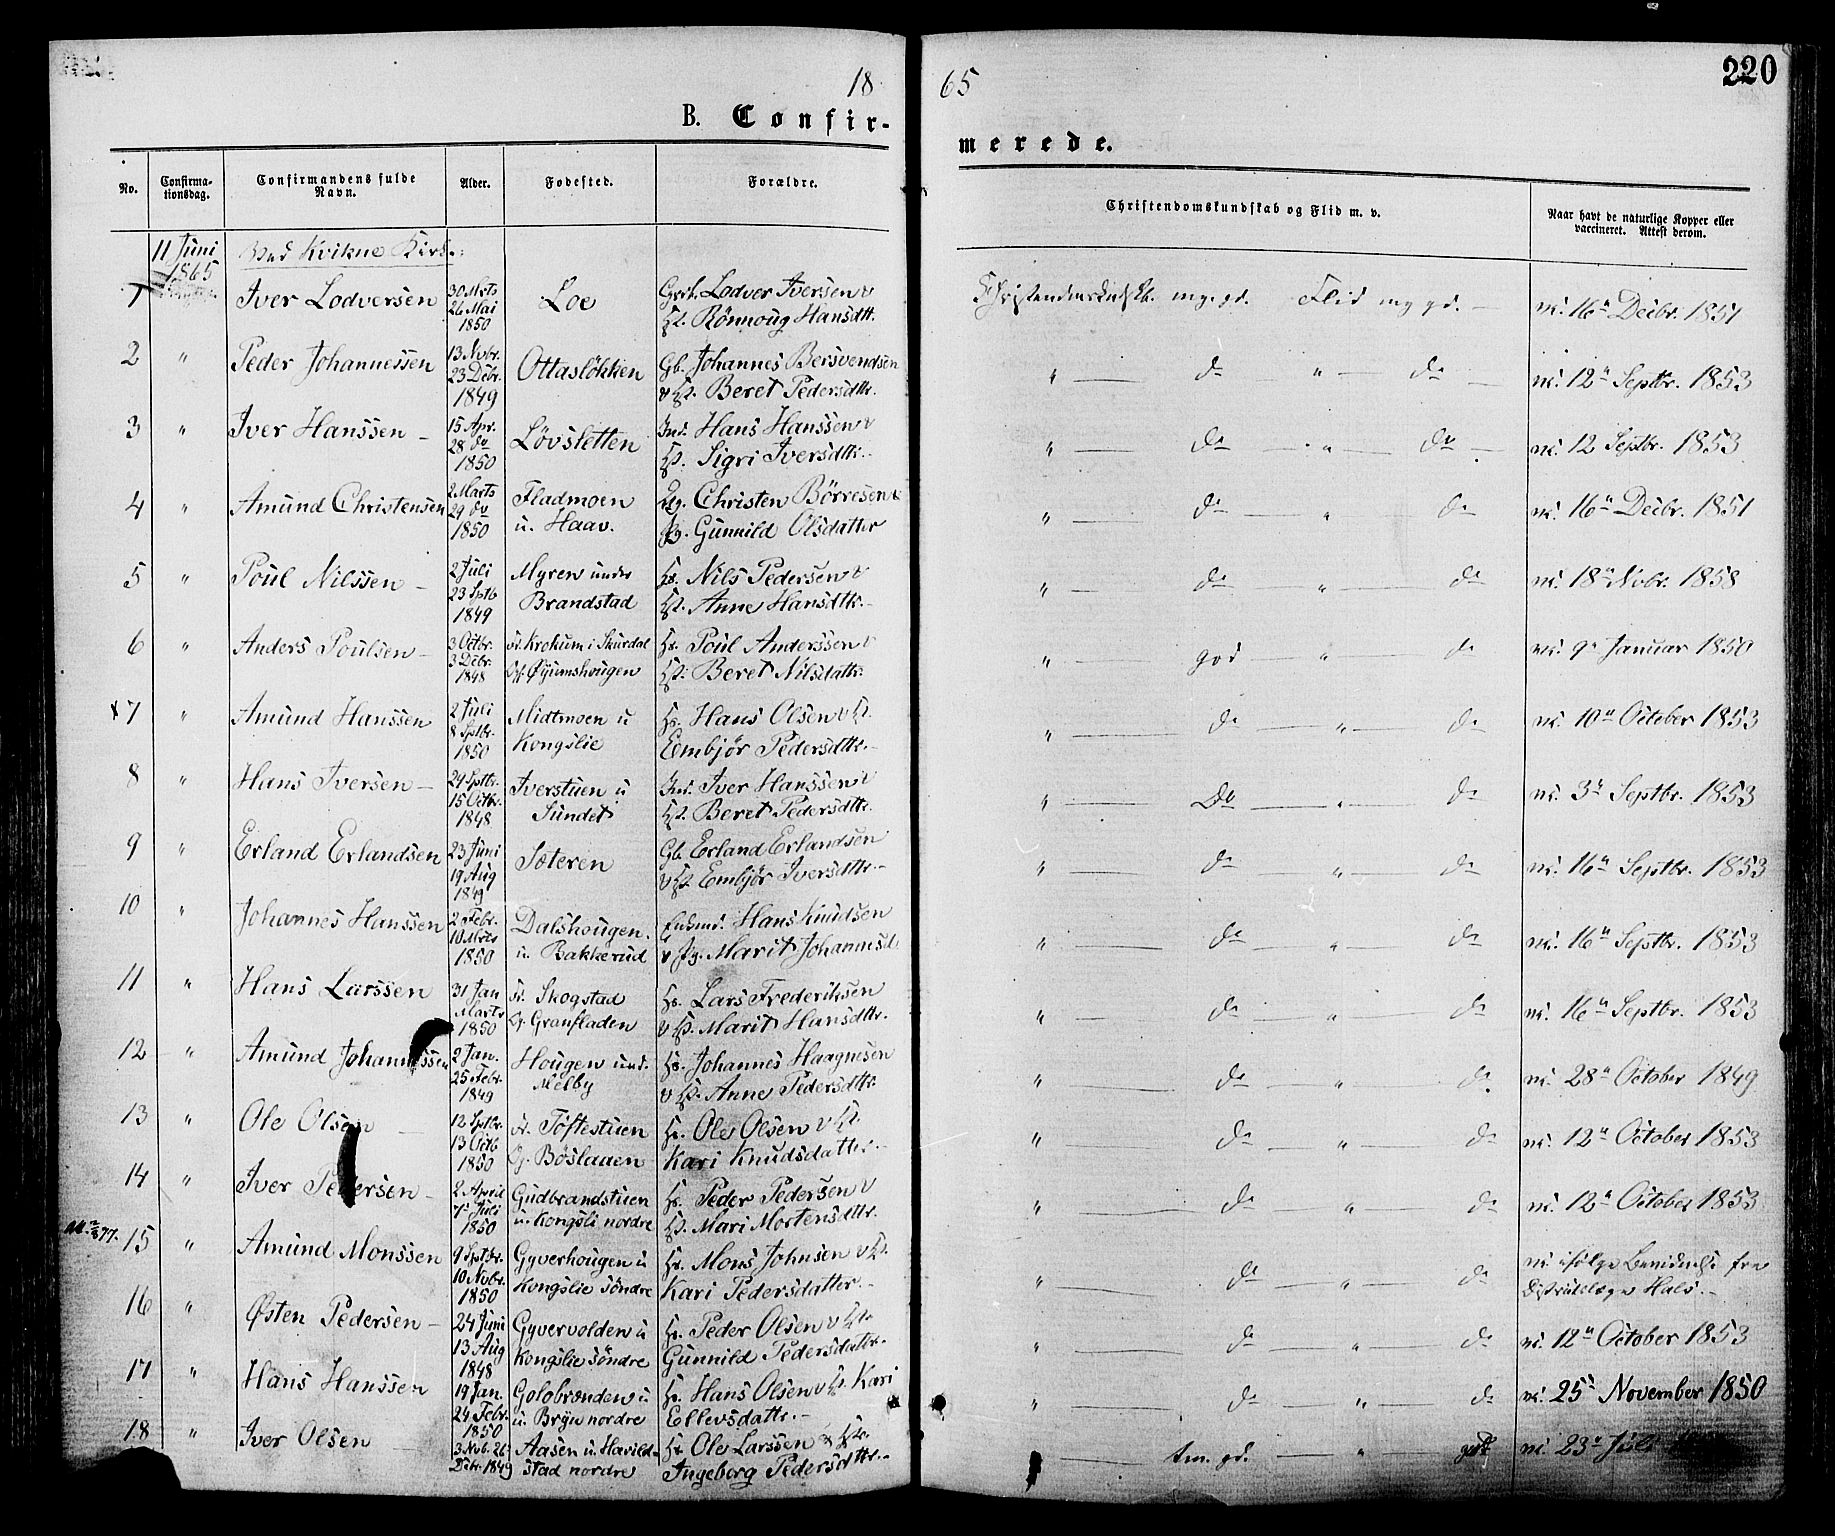 18
65
220
B. Confir-
merede.
No.
Confirma-
tionsdag.
Confirmandens fulde
Navn.
Alder.
Fødested.
Forældre.
Christendomskundskab og Flid m. v.
Naar havt de naturlige Kopper eller
vaccineret. Attest derom.
11 Juni
1865
Ved Kvikne Kirk.:
1 Iver Lodversen 30 Mrts
26 Mai
1850
Loe
Grdb. Lodver Iversen v
H. Rönnoug Hansdtr.
Christendomskndskb. mg. gd. Flid mg gd. —
vc. 16de Decbr. 1851
2 " Peder Johannessen 13 Nvbr.
23 Dcbr.
1849
Ottasløkken
Gb. Johannes Bersvendsen
v H. Beret Pedersdtr.
" — do " — do —
vc. 12te Septbr. 1853
3 " Iver Hanssen — 15 Apr.
28 do
1850
Løvsletten
Ind. Hans Hanssen v
H. Sigri Iversdtr.
" — do " — do —
vc. 12 Septbr. 1853
4 " Amund Christensen 2 Marts
29 do
1850
Fladmoen
u. Haav.
Ug. Christen Börresen v
Pg. Gunnild Olsdatter
" — do " do
vc. 16de Decbr. 1851
5 " Poul Nilssen — 2 Juli
23 Sptb
1849
Myren under
Brandstad
Hs. Nils Pedersen v
H. Anne Hansdtr.
" — do — " — do
vc. 18de Novbr. 1858
6 " Anders Poulsen — 3 Octbr.
3 Dcbr.
1848
fr. Krokum i Skurdal
Of. Øyumshougen
Hs. Poul Anderssen v
H. Beret Nilsdattr.
" god — " — do
vc. 9de Januar 1850
x7 " Amund Hanssen 2 Juli
8 Sptbr.
1850
Midtmoen u
Kongslie
Hs. Hans Olsen v H.
Eembjör Pedersdtr.
" — do — " — do
vc. 10de October 1853
8 " Hans Iversen — 24 Sptbr.
15 Octbr.
1848
Iverstuen u
Sundet
Ind. Iver Hanssen v
H. Beret Pedersdtr.
" — do — " — do
vc. 3de Septbr. 1853
9 " Erland Erlandsen 23 Juni
19 Aug
1849
Sæteren
Gb. Erland Erlandsen
v H. Embjör Iversdtr.
" — do — " — do
vc. 16de Septbr. 1853
10 " Johannes Hanssen 2 Febr.
10 Mrts
1850
Dalshougen
u. Bakkerud
Hans Knudsen
v Pg. Marit Johannesd.
" — do — " — do
vc. 16de Septbr. 1853
11 " Hans Larssen 31 Jan
Marts
1850
fr. Skogstad
Granfladen
Hs. Lars Frederiksen
v H. Marit Hansdtr.
" — do — " — do
vc. 16de Septbr. 1853
12 " Amund Johannessen 2 Jan.
25 Febr.
1849
Hougen und.
Melby
Hs. Johannes Haagnesen
v H. Anne Pedersdtr.
" — do — " — do
vc. 28de October 1849
13 " Ole Olsen — 12 Sptbr.
13 Octb
1850
fr. Töftestuen
Böslaaen
Hs. Ole Olsen v H.
Kari Knudsdatter
" — do — " — do
vc. 12te October 1853
14 " Iver Pedersen — 2 April
7de Juli
1850
Gudbrandstuen
u. Kongsli nordre
Hs. Peder Pedersen v
H. Mari Mortensdtr.
" — do — " — do
vc. 12te October 1853
15 " Amund Monssen 9 Sptbr.
10 Nvbr.
1850
Gyverhougen u
Kongslie söndre
Hs. Mons Johnsen v H.
Kari Pedersdatter
" — do — " — do
vc. ifølge fra
Hals.
16 " Østen Pedersen — 24 Juni
13 Aug
1848
Gyvervolden u
Kongslie söndre
Hs. Peder Olsen v H.
Gunnild Pedersdatr.
" — do " — do
vc. 12te October 1853
17 " Hans Hanssen 19 Jan.
24 Febr.
1850
Golobrenden u
u. Bryn nordre
Hs. Hans Olsen v H. Kari
Ellevsdattr.
" — do " — do
vc. 25de November 1850
18 " Iver Olsen — 3 Nvb. 26
Dcbr. 1849
Aasen u. Harild-
stad nordre
Hs. Ole Larssen v H.
Ingeborg Pedersdttr.
— tm. gd. — " — godt
vc. 23de Juli